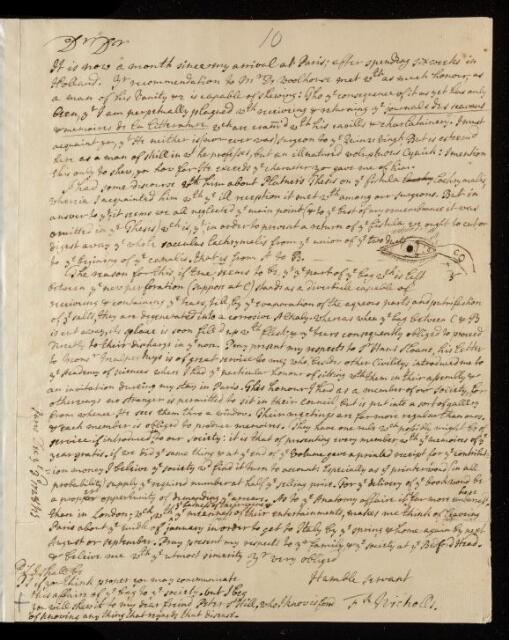 Dr Dr
10
It is now a month since my arrival at Paris; after spending six weeks in
Holland. Yr recommendation to Mr Dr Woolhouse met wth as much honour, as
a man of his Vanity is capable of shewing: Tho ye consequence of it as yet has only
been, yt I am perpetually plagued wth receiving & returning ye journals des scavans
& memoires de la Litterature wch are cram'd wth his cavills & charlatanery. I must
acquaint you, yt He neither is, nor ever was, surgeon to ye Quinze vingt. But is esteem'd
here as a man of skill in wt he professes, but an illnatured Cynick: I mention
this only to shew you how far He exceeds ye character you gave me of him.
I had some discourse wth him about Platners Thesis on ye fistula Lachrymalis,
wherein I acquainted him wth ye ill reception it met wth among our surgeons. But in
answer to yt it seems we all neglected ye main point; wch to ye best of my remembrance was
omitted in ye Thesis, wch is, yt in order to prevent a return of ye fistula we ought to cut or
digest away ye whole sacculus Lachrymalis from ye union of ye two ducts
to ye beginning of ye canalis. that is from A to B.
The reason for this if true seems to be yt ye part of ye bag wch is left
between ye new perforation (suppose at C) stands as a diverticle capable of
receiving & containing ye tears, till by ye evaporation of the aqueous parts and putrifaction
of ye salts, they are degenerated into a corrosive whereas when ye bag between C & B
is cut away, its place is soon fill'd up wth flesh, & ye tears consequently obliged to proceed
directly to their discharge in ye nose. Pray present my respects to Sr Hans Sloane, his Letter
to Monsr was of great service to me, who besides other Civilitys, introduced me to
ye Academy of sciences where I had ye particular honour of sitting wth them in their assembly, &
an invitation during my stay in Paris. This honour I had as a member of our Society, for
otherways no stranger is permitted to sit in their Council but is put into a sort of gallery
from whence He sees them thro a window. Their meetings are far more regular than ours,
& each member is obliged to produce memoires. They have one rule wch possibly might be of
service if introduced to our society: it is that of presenting every member wth ye memoires of ye
year gratis. if we did ye same thing wth at ye end of ye Volume gave a printed receipt for ye contribut-
ion money I believe ye society wd find it turn to account. Especially as ye printer wou'd in all
probability supply ye required number at half ye selling price. For ye delivery of ye book wou'd be
a proper opportunity of demanding ye arrears. As to ye Anatomy affairs if far more
than in London; wch wth ye meaness of their entertainments, makes me think of leaving
Paris about ye middle of january in order to get to Italy by ye spring & home again by next
August or september. Pray present my respects to ye family & ye society at ye Bedford Head.
& believe me wth ye utmost sincerity Yr very obliged
Humble servant
Fr Nicholls.
if you think proper you may communicate
this affair of ye bag to ye society. but I beg
you will shew it to my dear friend Peter St Hill, who I know is fond
of knowing any thing that respects that disease.
A
C
B